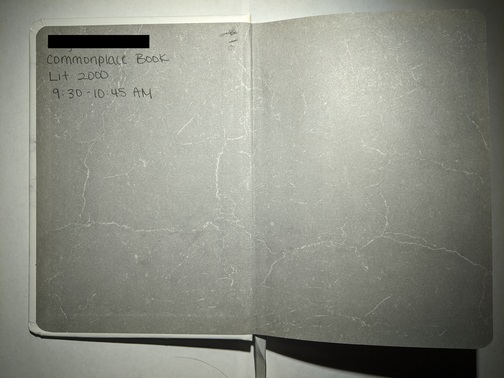 Commonplace Book
Lit 2000
9:30-10:45 AM